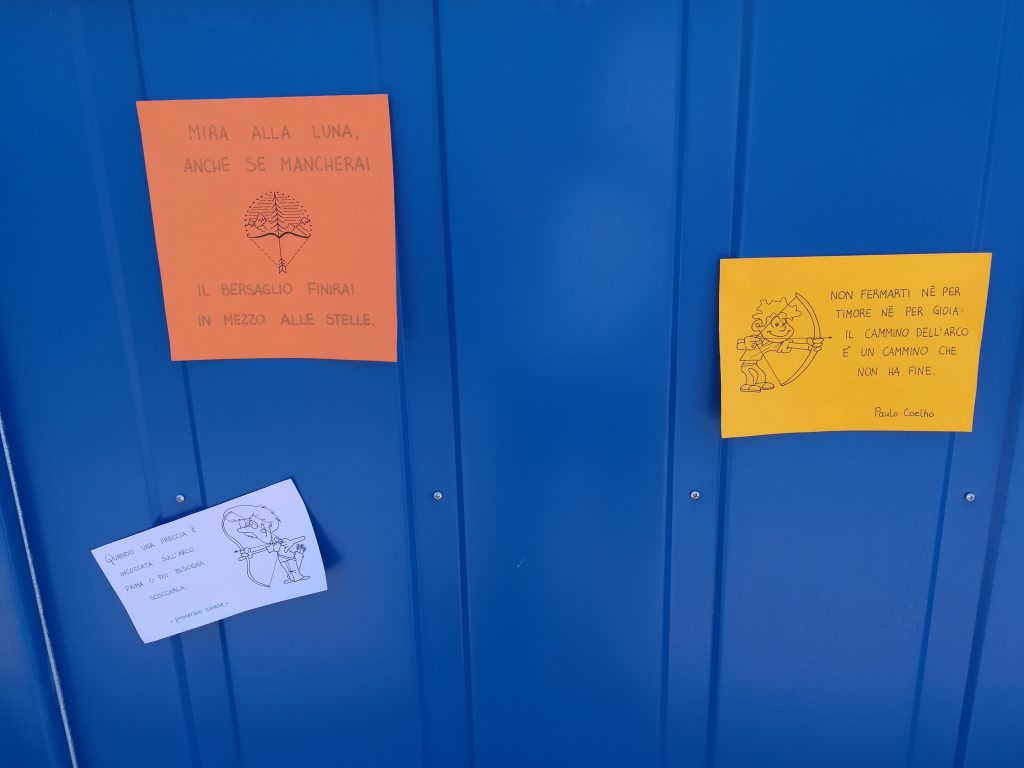 MIRA ALLA LUNA,
ANCHE SE MANCHERAI
IL BERSAGLIO FINIRAI
IN MEZZO ALLE STELLE.
NON FERMARTI NÉ PER
TIMORE NÉ PER GIOIA:
IL CAMMINO DELL'ARCO
È UN CAMMINO CHE
NON HA FINE.
Paulo Coelho
QUANDO UNA FRECCIA È
INCOCCATA SULL'ARCO
PRIMA O POI BISOGNA
SCOCCARLA.
- proverbio cinese -